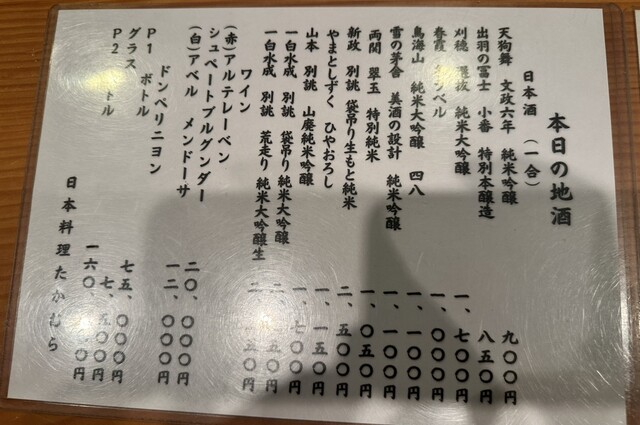 本日の地酒
日本酒 (一合)
天狗舞 文政六年 純米吟醸 九〇〇円
出羽の冨士 小番 特別本醸造 八五〇円
刈穂 純米大吟醸 一、七〇〇円
春霞 ベル 一、〇〇〇円
鳥海山 純米大吟醸 四八 一、一〇〇円
雪の茅舎 美酒の設計 純米吟醸 一、一〇〇円
両関 翠玉 特別純米 一、〇五〇円
新政 別誂 袋吊り生もと純米 二、五〇〇円
やまとしずく ひやおろし 一、一五〇円
山本 別誂 山廃純米吟醸 一、七〇〇円
一白水成 別誂 袋吊り 純米大吟醸 二、五〇円
一白水成 別誂 荒走り 純米大吟醸生 二、五〇円
ワイン
(赤) アルテレーベン
シュペートブルグンダー 二〇、〇〇〇円
(白) アベル メンドーサ 一二、〇〇〇円
ドンペリニヨン
P1 ボトル 七五、〇〇〇円
グラス 七、五〇〇円
P2 トル 一六〇、〇円
日本料理たかむら